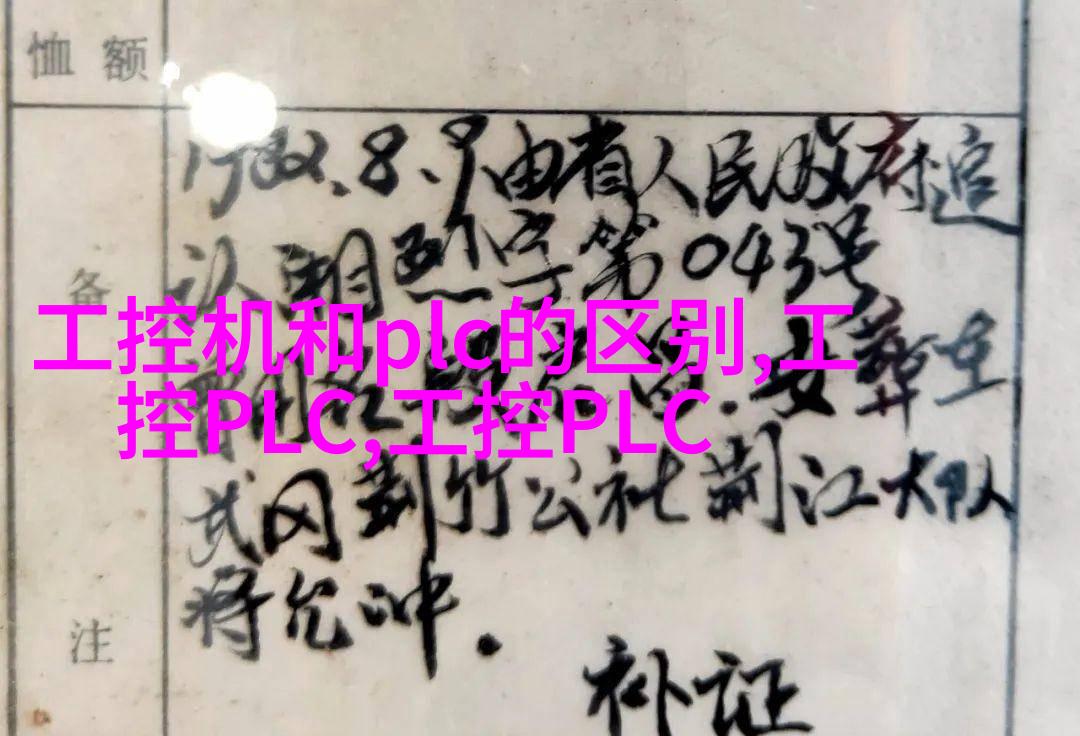 恤额
1982.8.9由省人民政府追
认湘烈字第043号
备
工控机和plc的区别,工
控PLC,工控PLC
安葬在
武冈荆竹公社荆江大队
将允冲.
注
补证